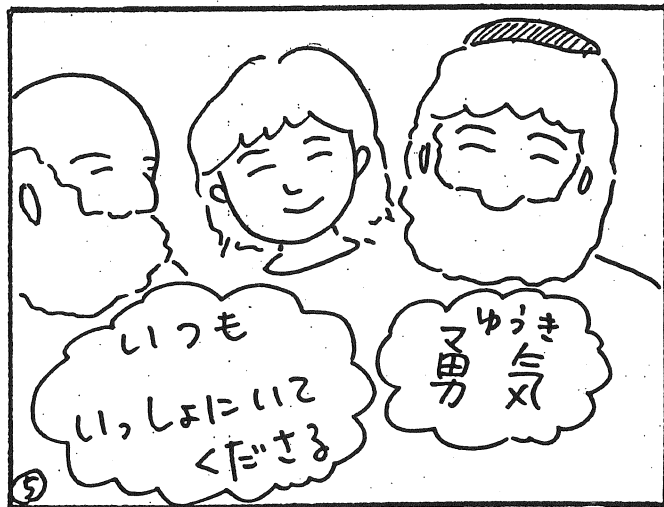 いつも
いっしょにいて
くださる
ゆうき
勇気
5